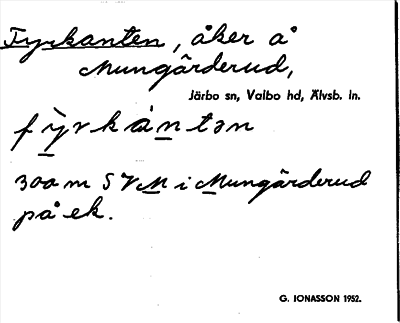 Fyrkanten, åker å
Mungärderud,
Järbo sn, Valbo hd, Älvsb. ln.
fỳrkàntən
300 m S VM i Mungärderud
på ek.
G. IONASSON 1952.